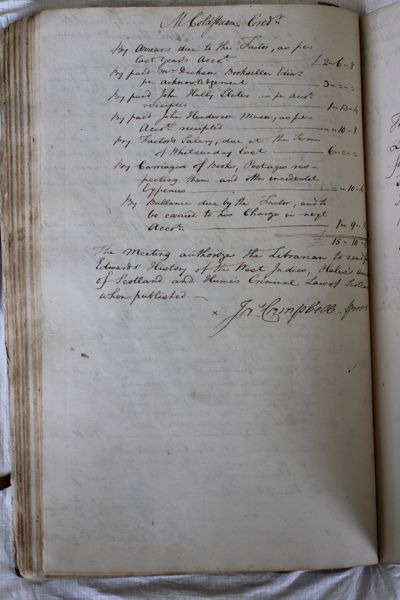 M. Goldsman Credr.
By Arrears due to the Factor, as per
last years Accot. £ 2 - 6 - 8
By paid Mr. Dickson Bookseller Edinr.
per acknowledgement 3 - = - =
By paid John Hally Slater as per Accot.
receipted 1 - 13 - 4
By paid John Henderson Mason, as per
Accot. receipted = - 10 - 8
By Factor's Salary, due at the Term
of Whitsunday last 6 - = - =
By Carriages of Books, Postages res-
pecting them and other incidental
Expences = - 10 - 6
By Ballance due by the Factor, and to
be carried to his Charge in next
Accot. 1 - 9 -
£ 15 - 10 -
The Meeting authorize the Librarian to send for
Edwards History of the West Indies,
of Scotland and Humes Criminal Law of
when published —
x Jno. Campbell. preses